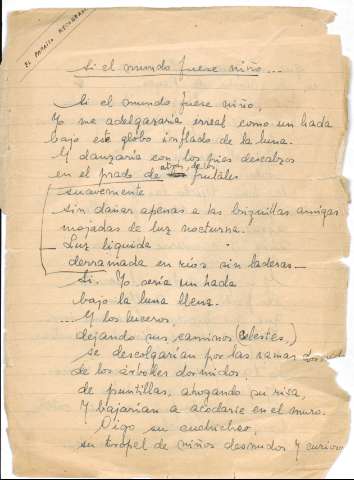 EL PARAISO RECOBRADO
Si el mundo fuese niño...
Si el mundo fuese niño,
Yo me adelgazaría irreal como un hada
bajo este globo inflado de la luna.
Y danzaría con los pies descalzos
en el prado de atrás, de los frutales
suavemente
sin dañar apenas a las briznillas amigas
mojadas de luz nocturna.
Luz líquida
derramada en ríos sin laderas—
Si. Yo sería un hada
bajo la luna llena.
....Y los luceros,
dejando sus caminos (celestes,)
se descolgarían por las ramas
de los árboles dormidos,
de puntillas, ahogando su risa,
Y bajarían a acodarse en el muro.
Oigo su cuchicheo,
su tropel de niños desnudos y curiosos